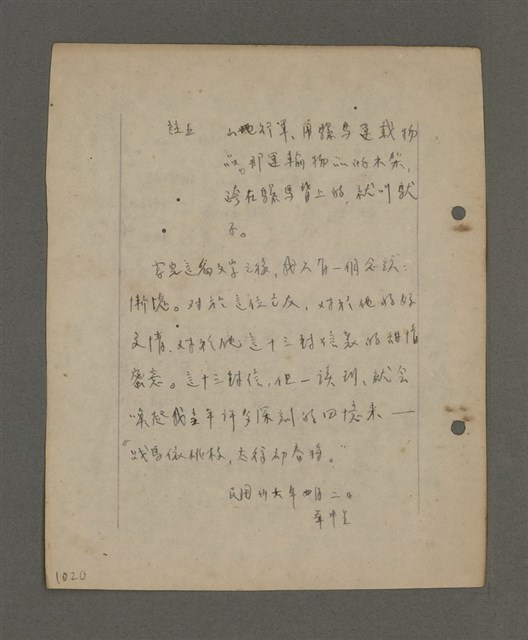 註五 山地行軍、用騾馬運載物
品。那運輸物品的木架,
跨在騾馬背上的,就叫馱
子。
寫完這篇文字之後,我只有一個念頭:
慚愧。對於這位亡友,對於他的好
友情,對於他這十三封信裏的甜情
蜜意。這十三封信,但一讀到,就会
喚起我當年許多深刻的回憶來——
"戰馬依桃林,去得却春將。"
民國卅六年四月二日
1020